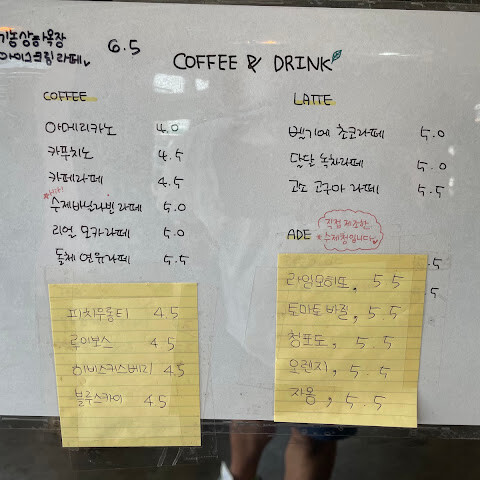 상하목장
아이스크림라떼 6.5
COFFEE & DRINK
COFFEE
아메리카노 4.0
카푸치노 4.5
카페라떼 4.5
수제바닐라빈 라떼 5.0
리얼 모카라떼 5.0
돌체 연유라떼 5.5
LATTE
벨기에 초코라떼 5.0
달달 녹차라떼 5.0
고소 고구마 라떼 5.5
ADE
직접 제조한
수제청입니다
.5
5
피치우롱티 4.5
루이보스 4.5
히비스커스베리 4.5
블루스카이 4.5
라임모히또, 5.5
토마토바질, 5.5
청포도, 5.5
오렌지, 5.5
자몽, 5.5